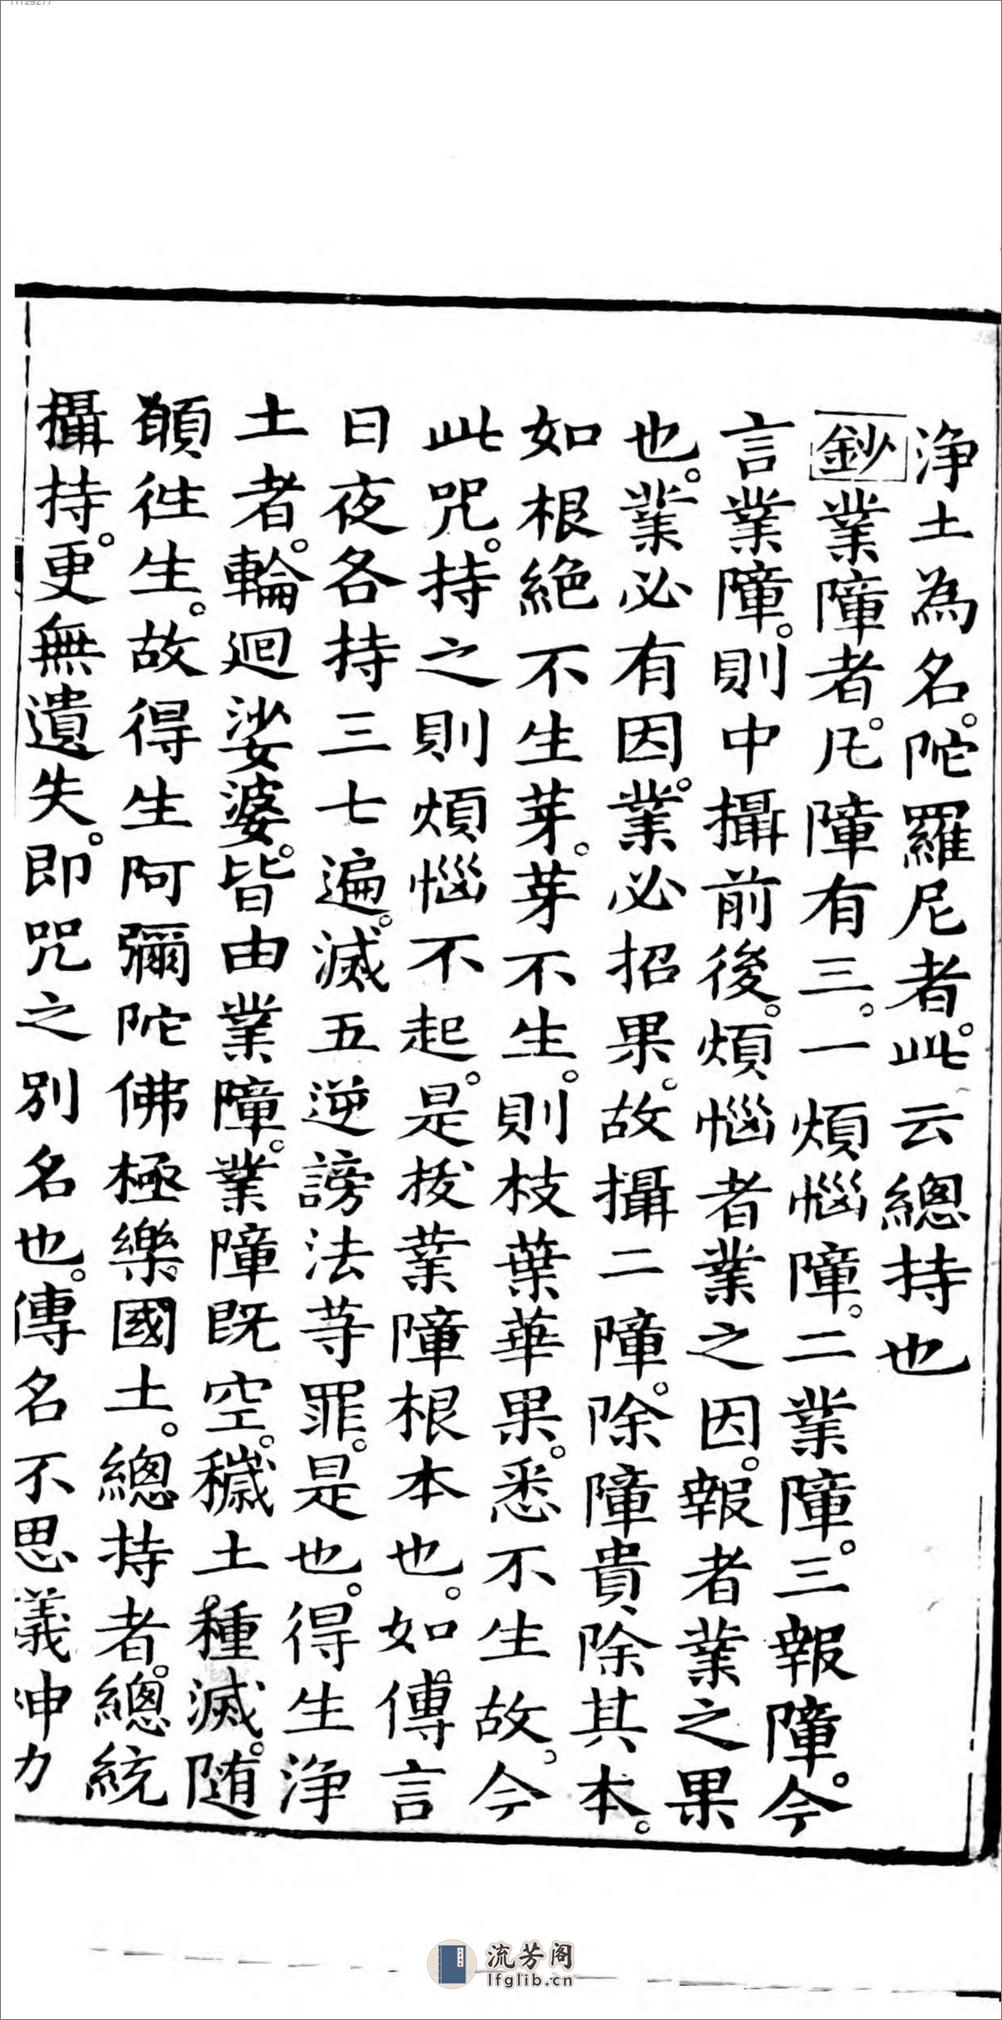 淨土為名。陀羅尼者。此云總持也
鈔業障者。凡障有三。一煩惱障。二業障。三報障。今
言業障。則中攝前後。煩惱者業之因。報者業之果
也。業必有因。業必招果。故攝二障。除障貴除其本。
如根絕不生芽。芽不生。則枝葉華果。悉不生故。今
此咒。持之則煩惱不起。是拔業障根本也。如傳言
日夜各持三七遍。滅五逆謗法等罪。是也。得生淨
土者。輪迴娑婆。皆由業障。業障既空。穢土種滅。随
願往生。故得生阿彌陀佛極樂國土。總持者。總統
攝持。更無遺失。即咒之別名也。傳名不思議神力
流芳阁
lfglib.cn